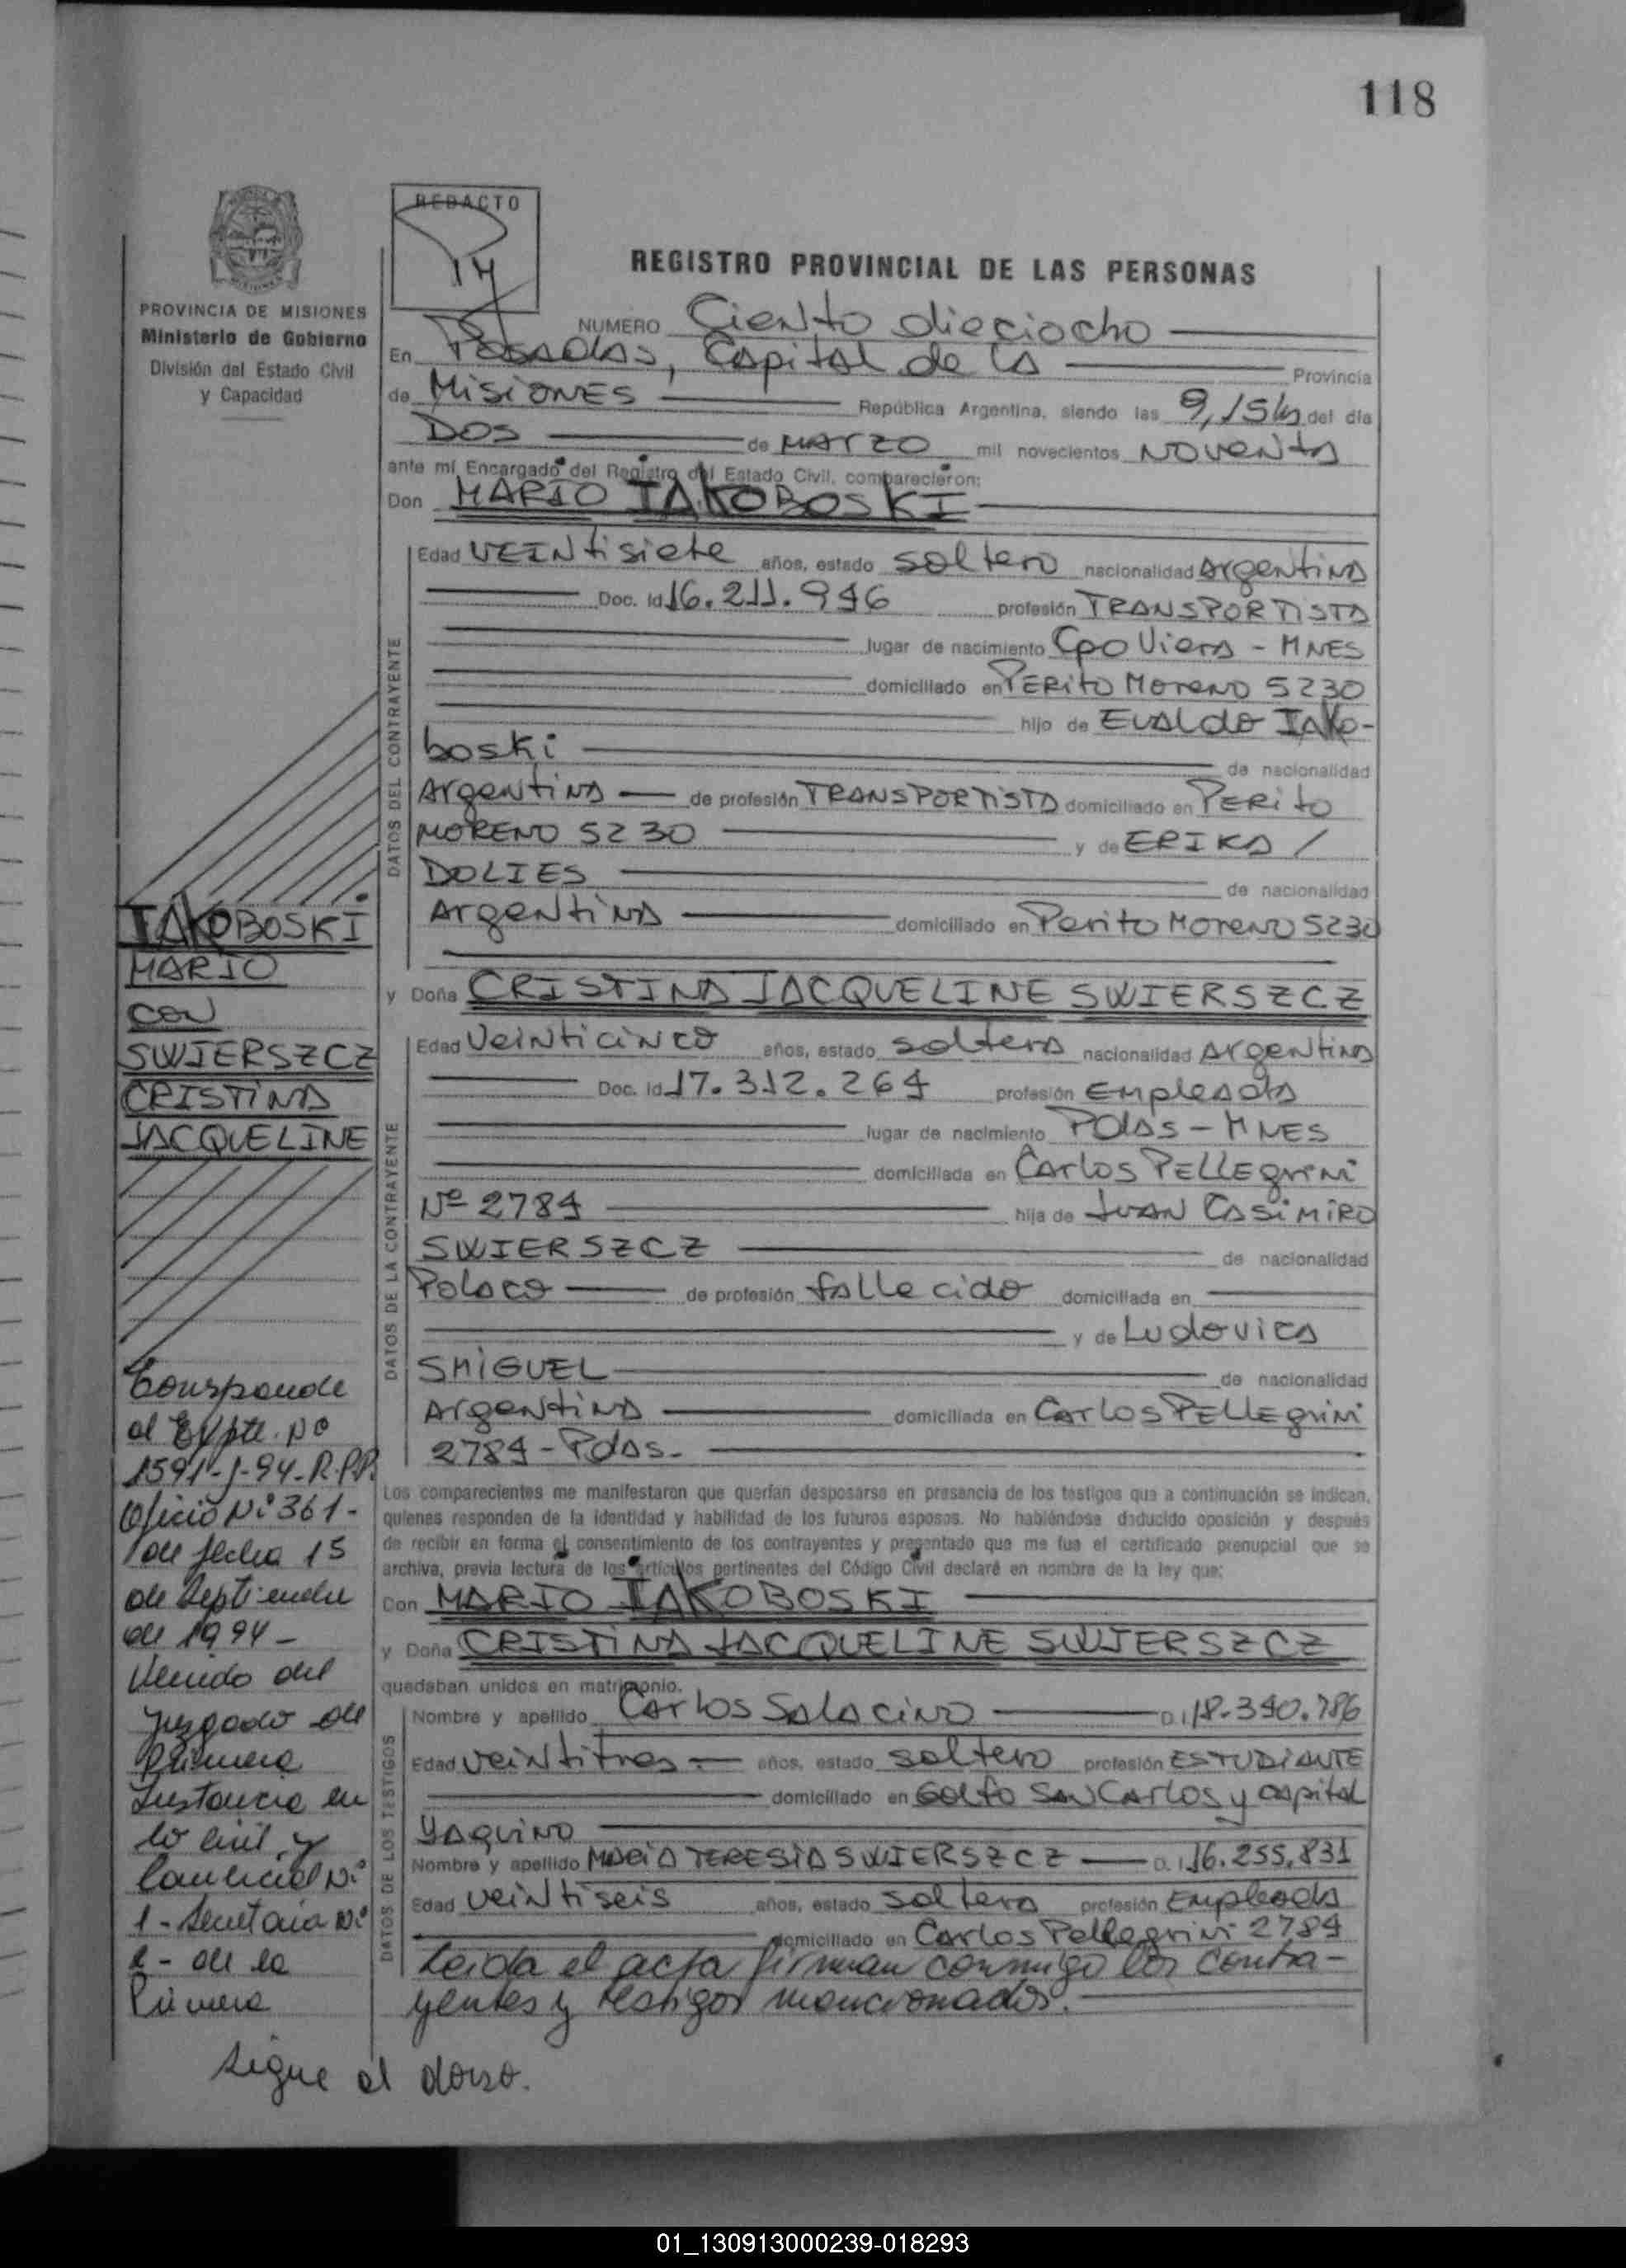 118
REDACTO
14
PROVINCIA DE MISIONES
Ministerio de Gobierno
División del Estado Civil
y Capacidad
REGISTRO PROVINCIAL DE LAS PERSONAS
NUMERO Ciento dieciocho
En Posadas, Capital de la Provincia
de Misiones República Argentina, siendo las 9,15 hs del día
Dos de Marzo mil novecientos Noventa
ante mí Encargado del Registro del Estado Civil, comparecieron:
Don MARIO IAKOBOSKI
DATOS DEL CONTRAYENTE
Edad VEINtisiete años, estado soltero nacionalidad Argentina
Doc. Id 16.211.946 profesión TRANSPORTISTA
lugar de nacimiento Cpo Viera - MNES
domiciliado en PERito Moreno 5230
hijo de Evaldo Iako-
boski de nacionalidad
Argentina de profesión TRANSPORTISTA domiciliado en PERito
MORENO 5230 y de ERIKA /
DOLIES de nacionalidad
Argentina domiciliado en Perito Moreno 5230
y Doña CRISTINA JACQUELINE SWIERSZCZ
DATOS DE LA CONTRAYENTE
Edad Veinticinco años, estado soltera nacionalidad Argentina
Doc. Id 17.312.264 profesión Empleada
lugar de nacimiento Pdas - MNES
domiciliada en Carlos PELLEgrini
Nº 2784 hija de Juan Casimiro
SWIERSZCZ de nacionalidad
Polaco de profesión fallecido domiciliada en
y de Ludovica
SMIGUEL de nacionalidad
Argentina domiciliada en Carlos PELLEgrini
2784 - Pdas.-
Los comparecientes me manifestaron que querían desposarse en presencia de los testigos que a continuación se indican,
quienes responden de la identidad y habilidad de los futuros esposos. No habiéndose deducido oposición y después
de recibir en forma el consentimiento de los contrayentes y presentado que me fue el certificado prenupcial que se
archiva, previa lectura de los artículos pertinentes del Código Civil declaré en nombre de la ley que:
Don MARIO IAKOBOSKI
y Doña CRISTINA JACQUELINE SWIERSZCZ
quedaban unidos en matrimonio.
DATOS DE LOS TESTIGOS
Nombre y apellido Carlos Salacino D.I. 18.340.786
Edad veintitres años, estado soltero profesión ESTUDIANTE
domiciliado en Golfo San Carlos y capital
Yaquino
Nombre y apellido MARIA TERESIA SWIERSZCZ D.I. 16.255.831
Edad veintiseis años, estado soltera profesión Empleada
domiciliado en Carlos Pellegrini 2784
Leida el acta firman conmigo los contra-
yentes y testigos mencionados.
IAKOBOSKI
MARIO
CON
SWIERSZCZ
CRISTINA
JACQUELINE
Corresponde
al Expte. Nº
1591-J-94-R.P.P.
Oficio Nº 361-
de fecha 15
de Septiembre
de 1994 -
Venido del
Juzgado de
Primera
Instancia en
lo civil y
Comercial Nº
1 - Secretaria Nº
2 - de la
Primera
Sigue al dorso.
01_130913000239-018293